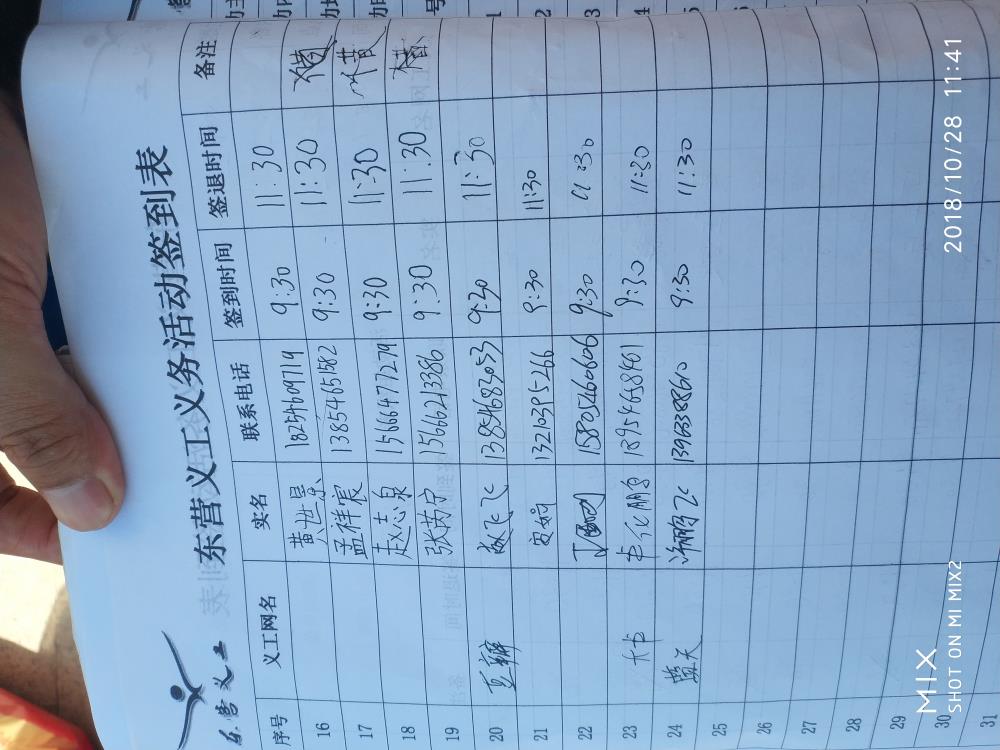 东营义工
东营义工义务活动签到表
序号 义工网名 实名 联系电话 签到时间 签退时间 备注
16 黄世景 18254609719 9:30 11:30
17 孟祥宸 13854651582 9:30 11:30
18 赵志泉 15666477279 9:30 11:30
19 张芮宁 15666213386 9:30 11:30
20 豆瓣 飞飞 13854683053 9:30 11:30
21 安娜 13210395266 9:30 11:30
22 丁 15805460606 9:30 11:30
23 大卡 鹏 18954684 9:30 11:30
24 蓝天 许鹏飞 9:30 11:30
25
26
27
28
29
30
31
MIX
SHOT ON MI MIX2
2018/10/28 11:41